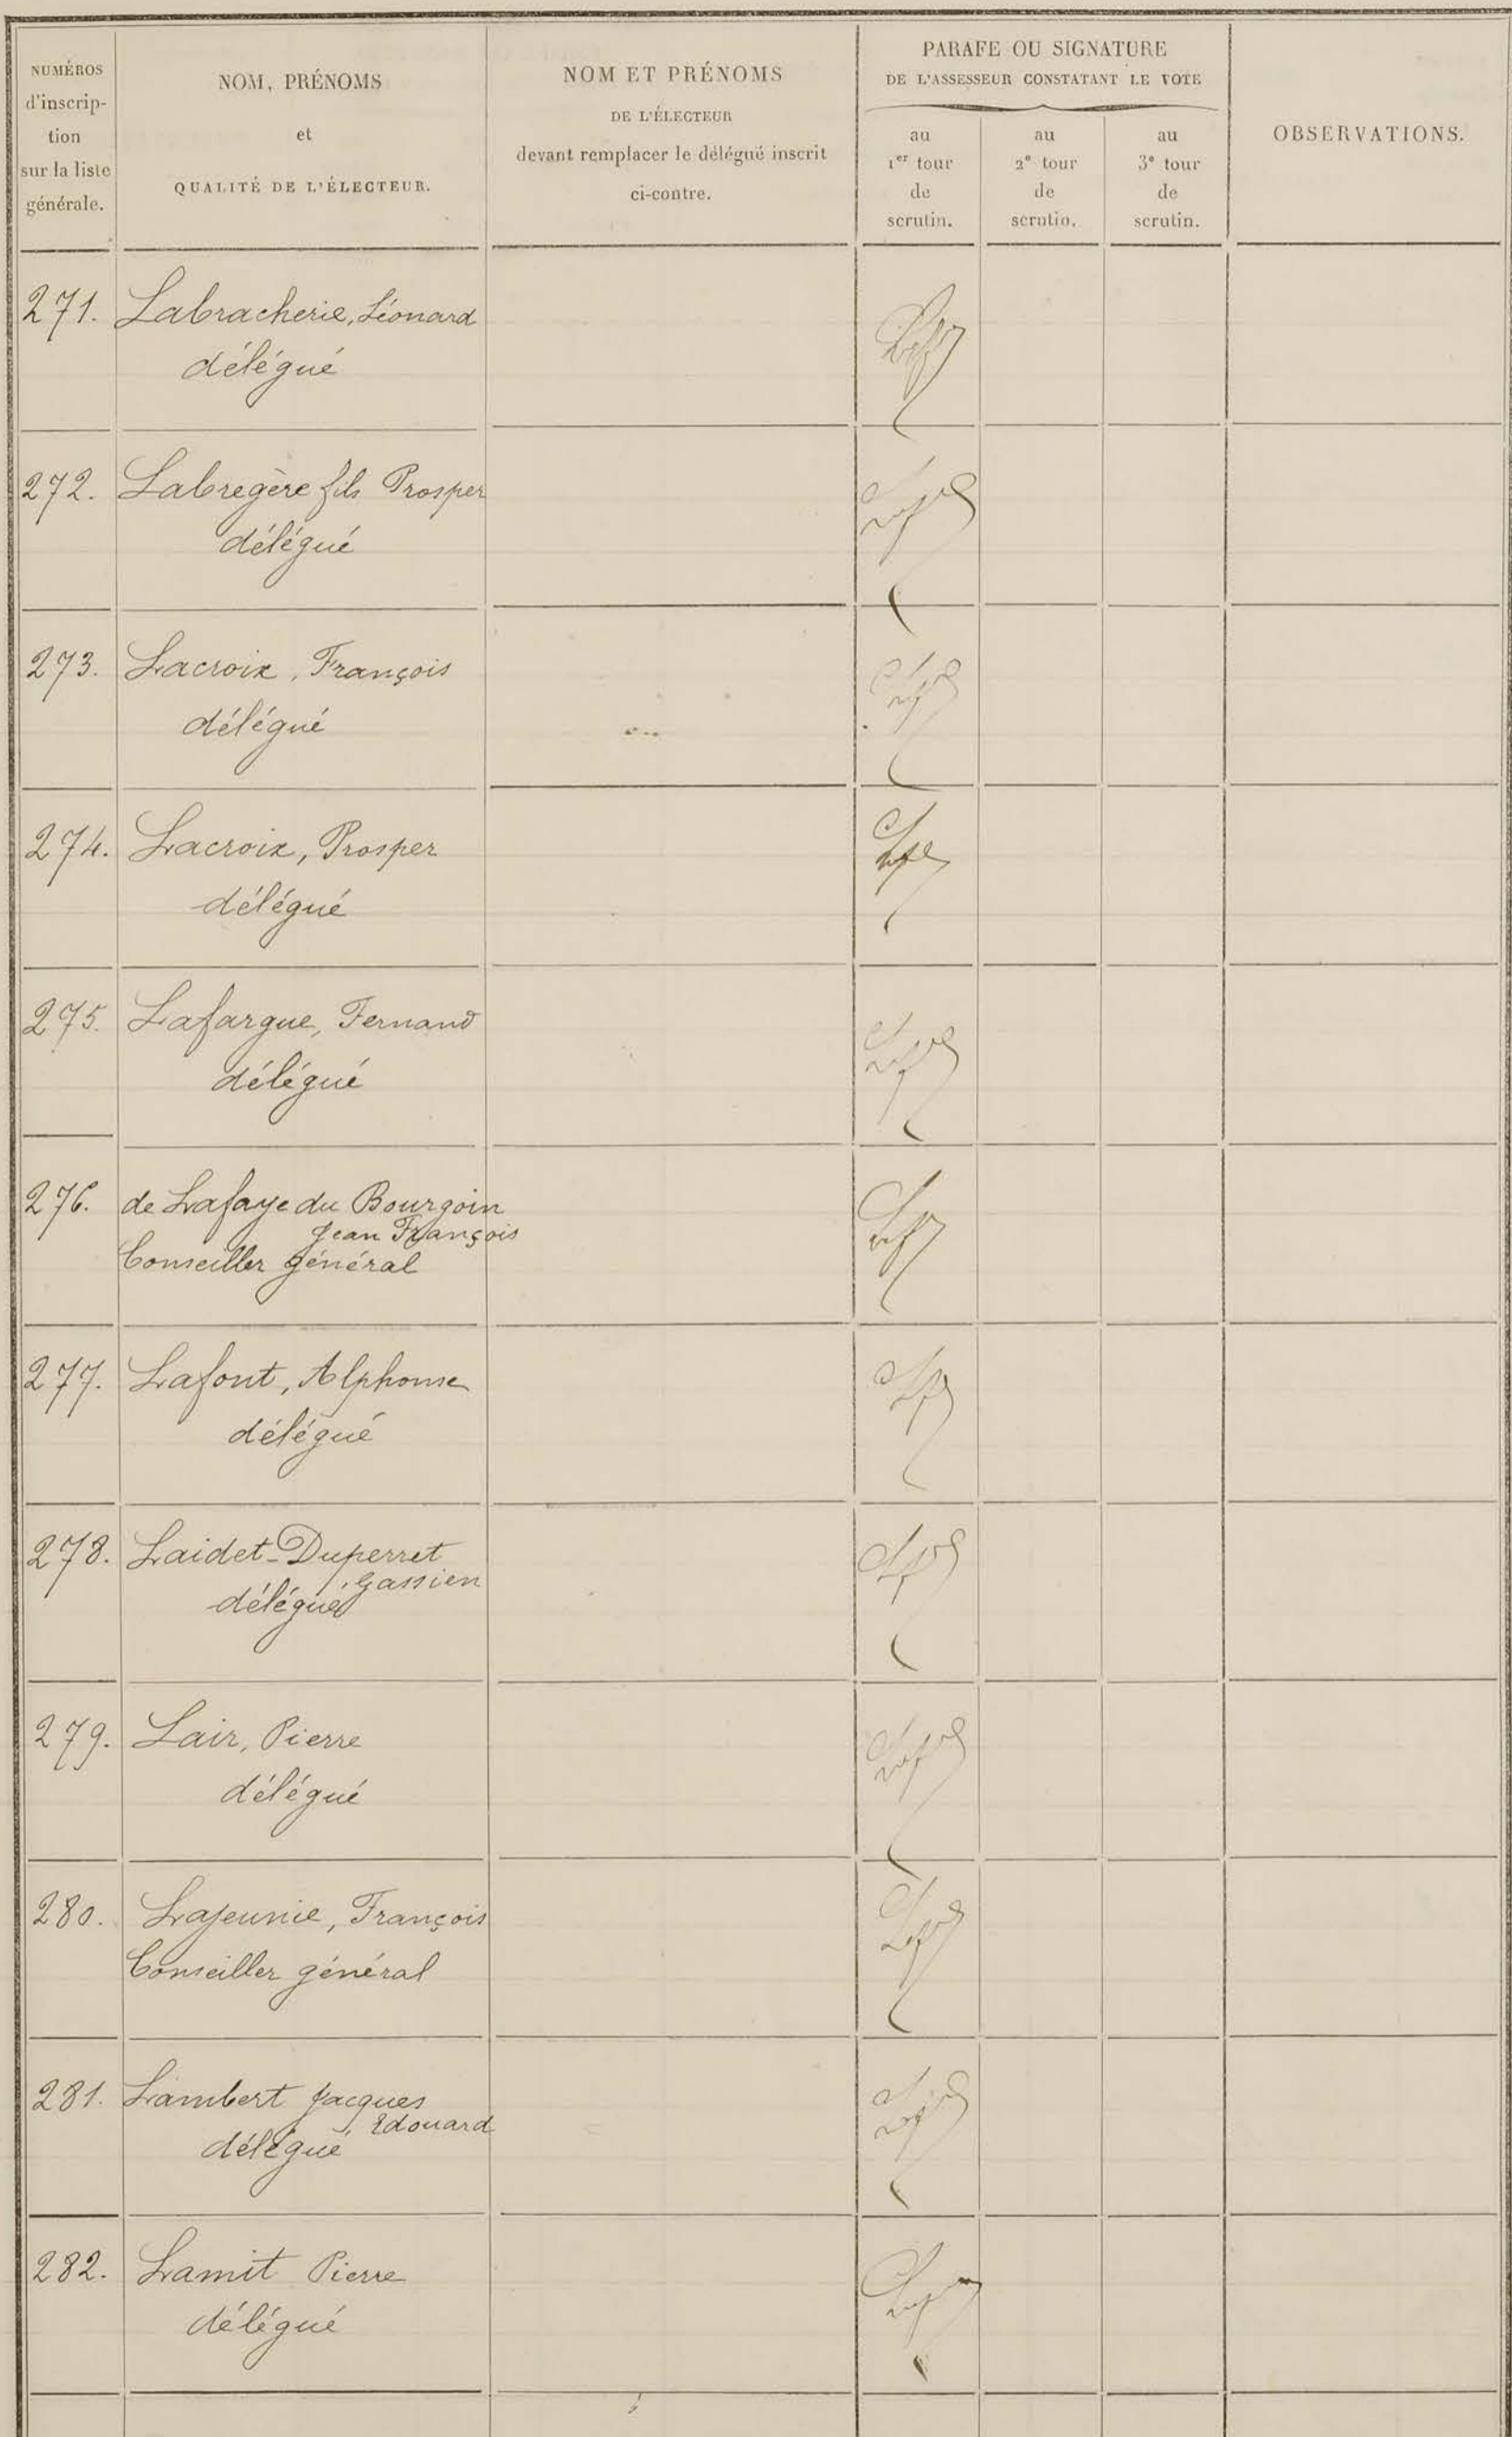 NUMÉROS
d'inscrip-
tion
sur la liste
générale.
NOM, PRÉNOMS
et
QUALITÉ DE L'ÉLECTEUR.
NOM ET PRÉNOMS
DE L'ÉLECTEUR
devant remplacer le délégué inscrit
ci-contre.
PARAFE OU SIGNATURE
DE L'ASSESSEUR CONSTATANT LE VOTE
au
1er tour
de
scrutin.
au
2e tour
de
scrutin.
au
3e tour
de
scrutin.
OBSERVATIONS.
271. Labracherie, Léonard
délégué
272. Labregère fils Prosper
délégué
273. Lacroix, François
délégué
274. Lacroix, Prosper
délégué
275. Lafargue, Fernand
délégué
276. de Lafaye du Bourgoin
Jean François
Conseiller général
277. Lafont, Alphonse
délégué
278. Laidet-Duperret
, Gassien
délégué
279. Lair, Pierre
délégué
280. Lajeunie, François
Conseiller général
281. Lambert Jacques
, Edouard
délégué
282. Lamit Pierre
délégué